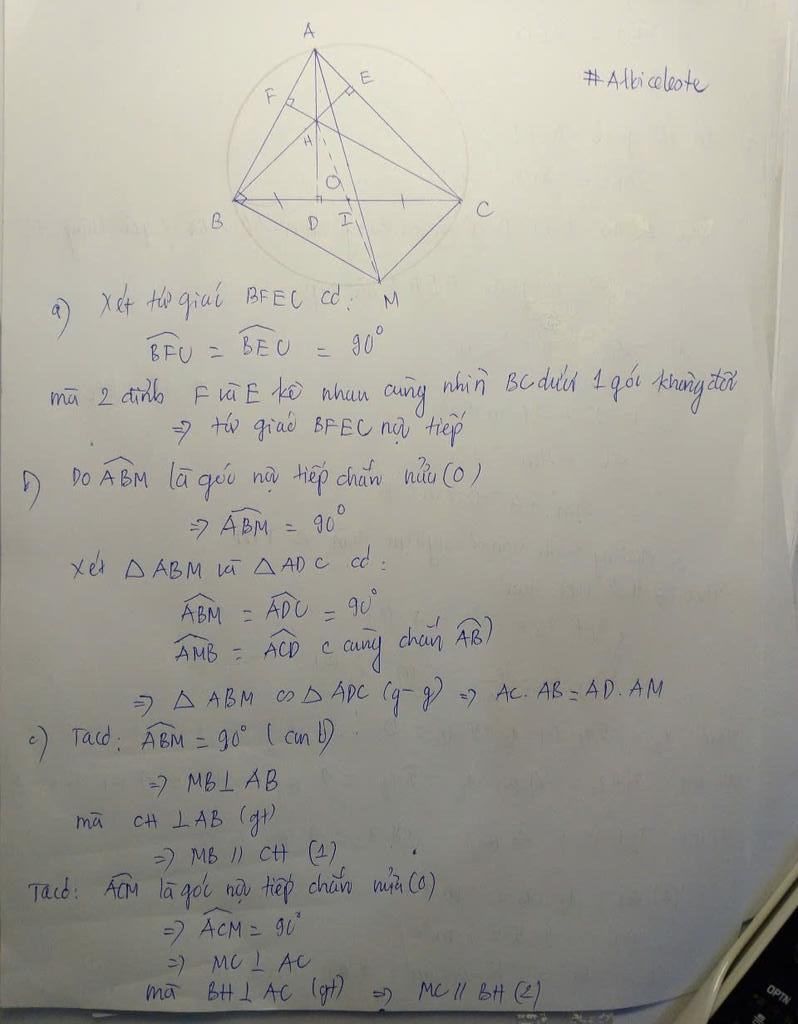 A
#Albiceleste
E
F
H
O
B
D
I
C
M
a) Xét tứ giác BFEC có:
BFC = BEC = 90°
mà 2 đỉnh F và E kề nhau cùng nhìn BC dưới 1 góc không đổi
=> tứ giác BFEC nội tiếp
b) Do ABM là góc nội tiếp chắn nửa (O)
=> ABM = 90°
Xét △ ABM và △ ADC có:
ABM = ADC = 90°
AMB = ACD ( cùng chắn AB)
=> △ ABM ∽ △ ADC (g-g) => AC. AB = AD. AM
c) Tacó: ABM = 90° ( cm b)
=> MB ⊥ AB
mà CH ⊥ AB (gt)
=> MB // CH (1)
Tacó: ACM là góc nội tiếp chắn nửa (O)
=> ACM = 90°
=> MC ⊥ AC
mà BH ⊥ AC (gt) => MC // BH (2)
OPTN